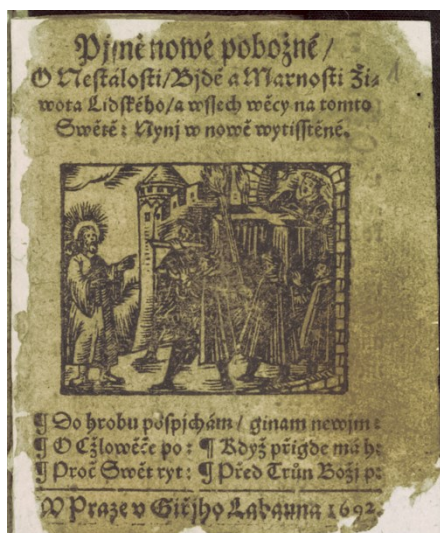 Pjsně nowé pobožné /
O Nestalosti / Bjdě a Marnosti Ži-
wota Lidského / a wssech wěcy na tomto
Swětě: Nynj w nowě wytisstěné.
¶ Do hrobu pospjchám / ginam newjm:
¶ O Cžlowěče po: ¶ Když přigde má h:
¶ Proč Swět ryt: ¶ Před Trůn Boži p:
W Praze v Giřjho Labauna 1692.